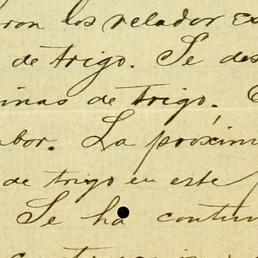 ron los relador Ex
de trigo. Se des
inas de trigo.
abor. La próxim
de trigo en este
Se ha contin